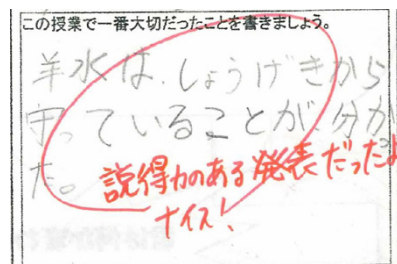 この授業で一番大切だったことを書きましょう。
羊水は、しょうげきから
守っていることが、分かっ
た。
説得力のある発表だったよ
ナイス!